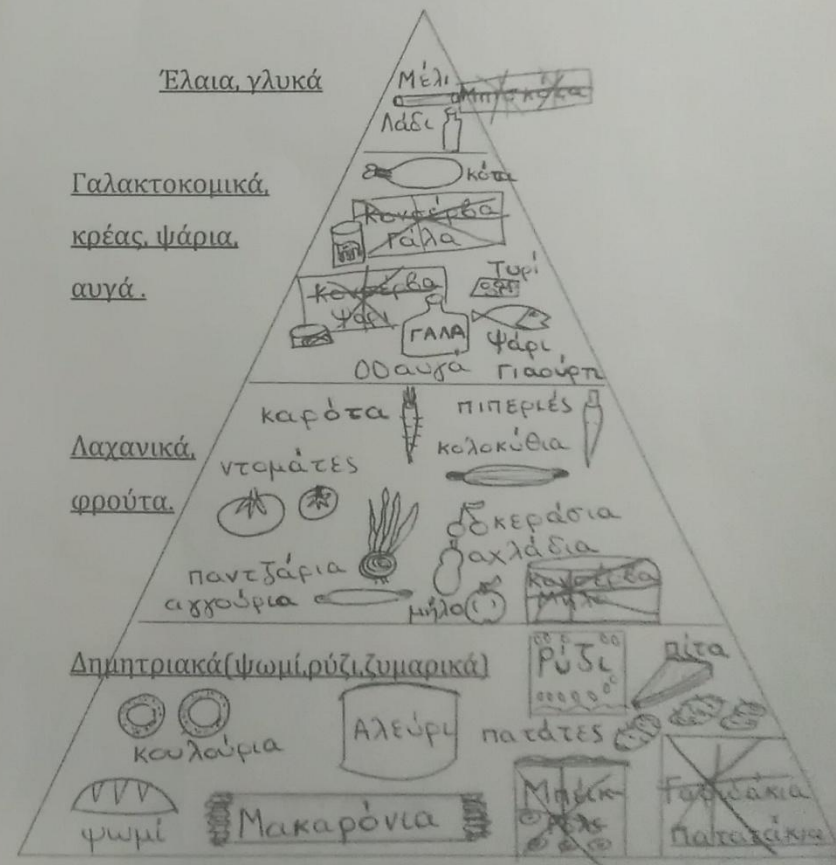 Έλαια, γλυκά
Μέλι
Μπισκότα
Λάδι
Γαλακτοκομικά,
κρέας, ψάρια,
αυγά .
κότα
Κονσέρβα
Γάλα
Τυρί
Κονσέρβα
Ψάρι
ΓΑΛΑ
ψάρι
αυγά
Γιαούρτι
Λαχανικά,
φρούτα.
καρότα
πιπεριές
κολοκύθια
ντομάτες
κεράσια
αχλάδια
παντζάρια
αγγούρια
μήλο
Κονσέρβα
Μήλο
Δημητριακά(ψωμί,ρύζι,ζυμαρικά)
Ρύζι
πίτα
κουλούρια
Αλεύρι
πατάτες
ψωμί
Μακαρόνια
Μπέικ
Ρολς
Γαριδάκια
Πατατάκια